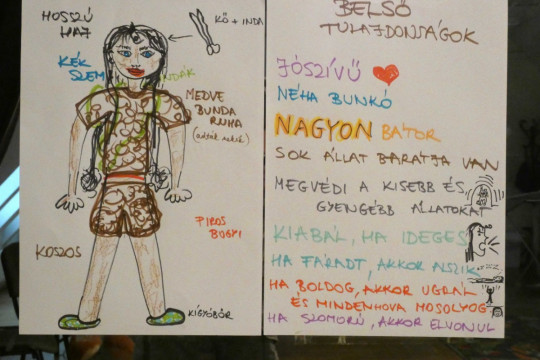 HOSSZÚ
HAJ
KŐ + INDA
KÉK
SZEM
INDÁK
MEDVE
BUNDA
RUHA
(adták neki)
PIROS
BUGYI
KOSZOS
KÍGYÓBŐR
BELSŐ
TULAJDONSÁGOK
JÓSZÍVŰ
NÉHA BUNKÓ
NAGYON BÁTOR
SOK ÁLLAT BARÁTJA VAN
MEGVÉDI A KISEBB ÉS
GYENGÉBB ÁLLATOKAT
KIABÁL, HA IDEGES
HA FÁRADT, AKKOR ALSZIK
HA BOLDOG, AKKOR UGRÁL
ÉS MINDENHOVA MOSOLYOG
HA SZOMORÚ, AKKOR ELVONUL